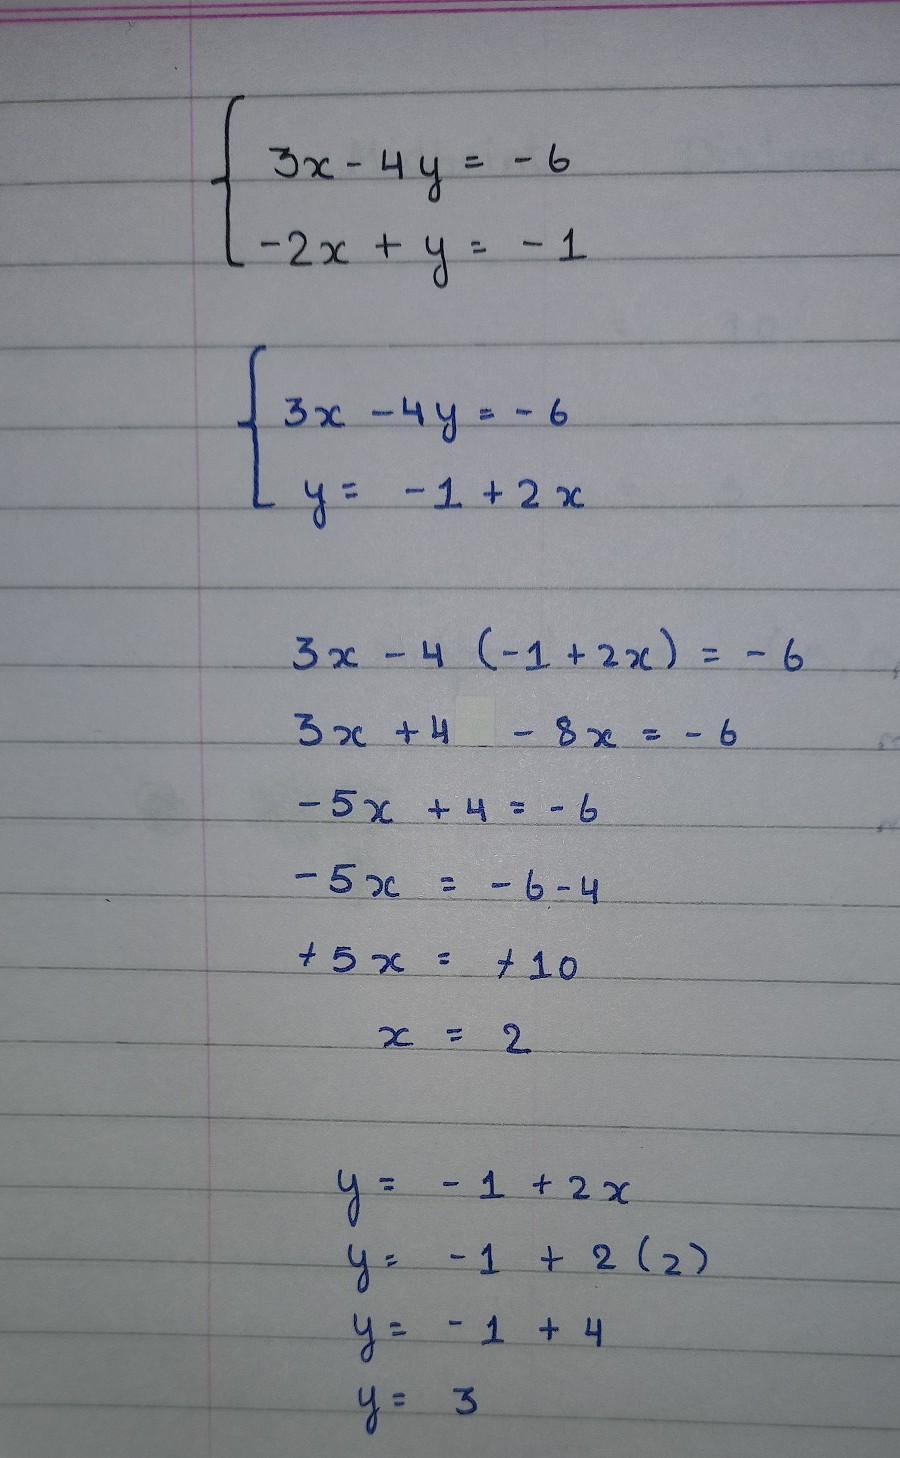 3x - 4y = -6
-2x + y = -1
3x - 4y = -6
y = -1 + 2x
3x - 4 (-1 + 2x) = -6
3x + 4 - 8x = -6
-5x + 4 = -6
-5x = -6 - 4
+5x = +10
x = 2
y = -1 + 2x
y = -1 + 2(2)
y = -1 + 4
y = 3